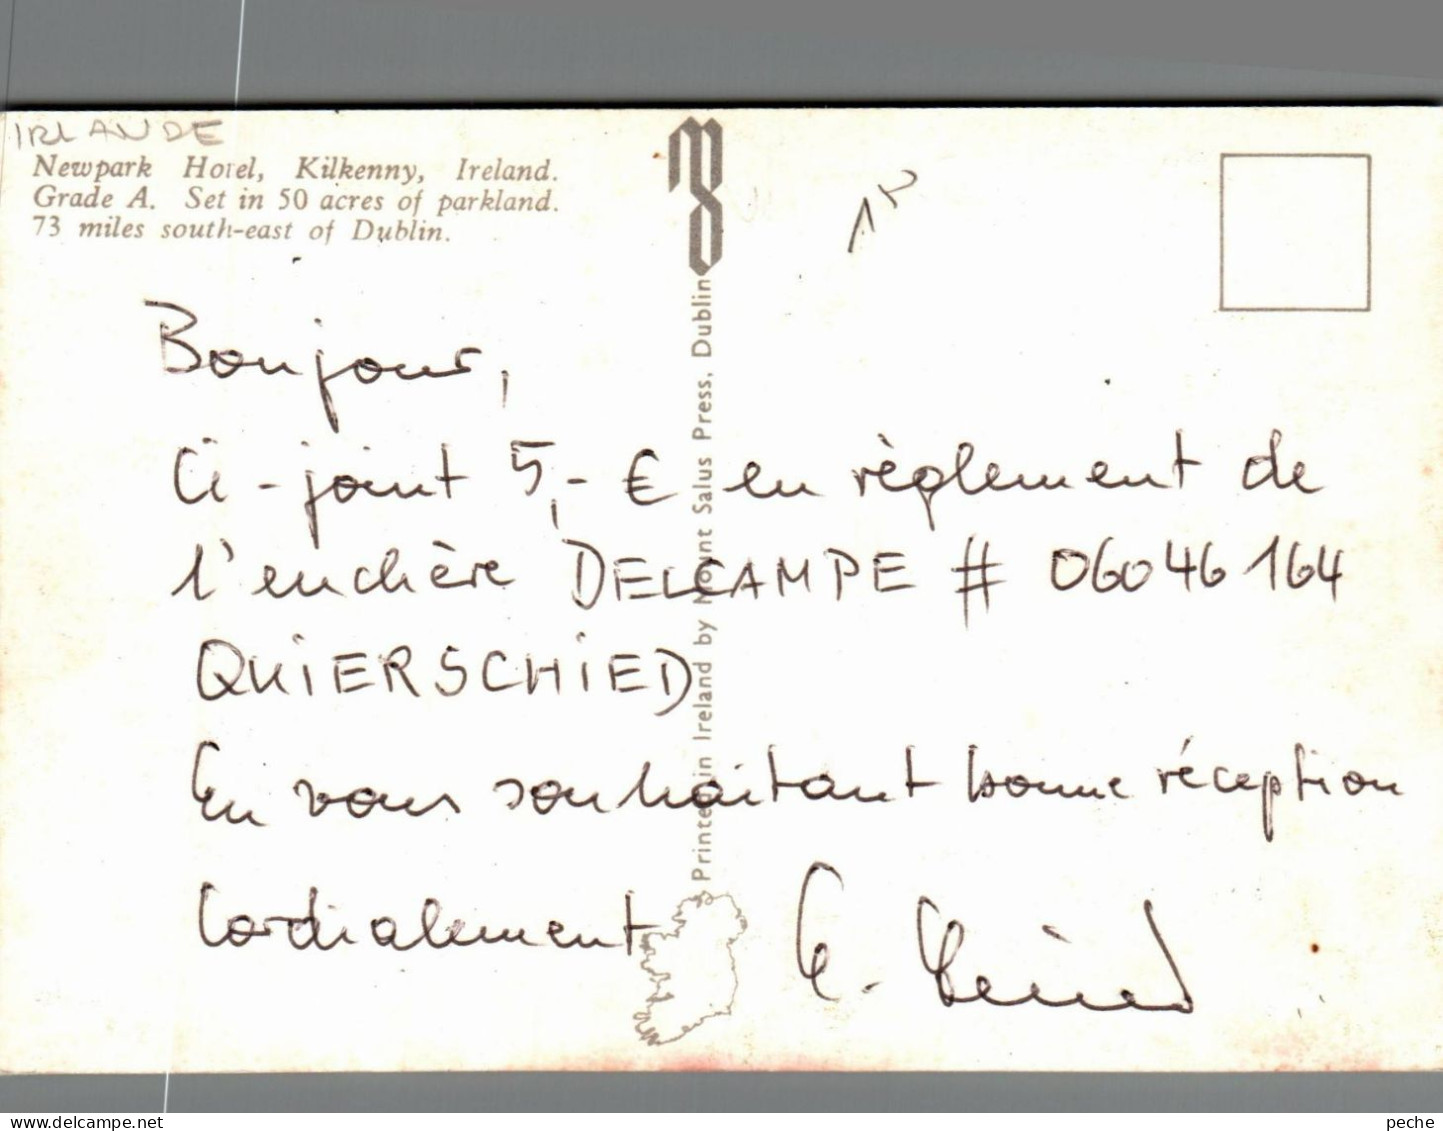 IRLANDE
Newpark Hotel, Kilkenny, Ireland.
Grade A. Set in 50 acres of parkland.
73 miles south-east of Dublin.
Printed in Ireland by Mount Salus Press, Dublin
Bonjour,
Ci-joint 5,- € en règlement de
l'enchère DELCAMPE # 06046164
QUIERSCHIED
En vous souhaitant bonne réception
Cordialement
delcampe.net
peche